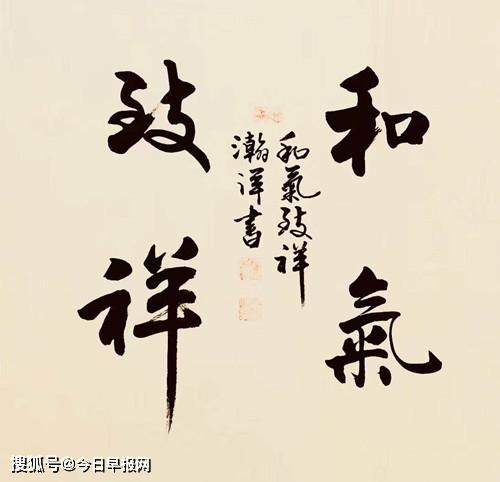 和氣
致祥
和氣致祥
瀚祥書
搜狐号@今日早报网